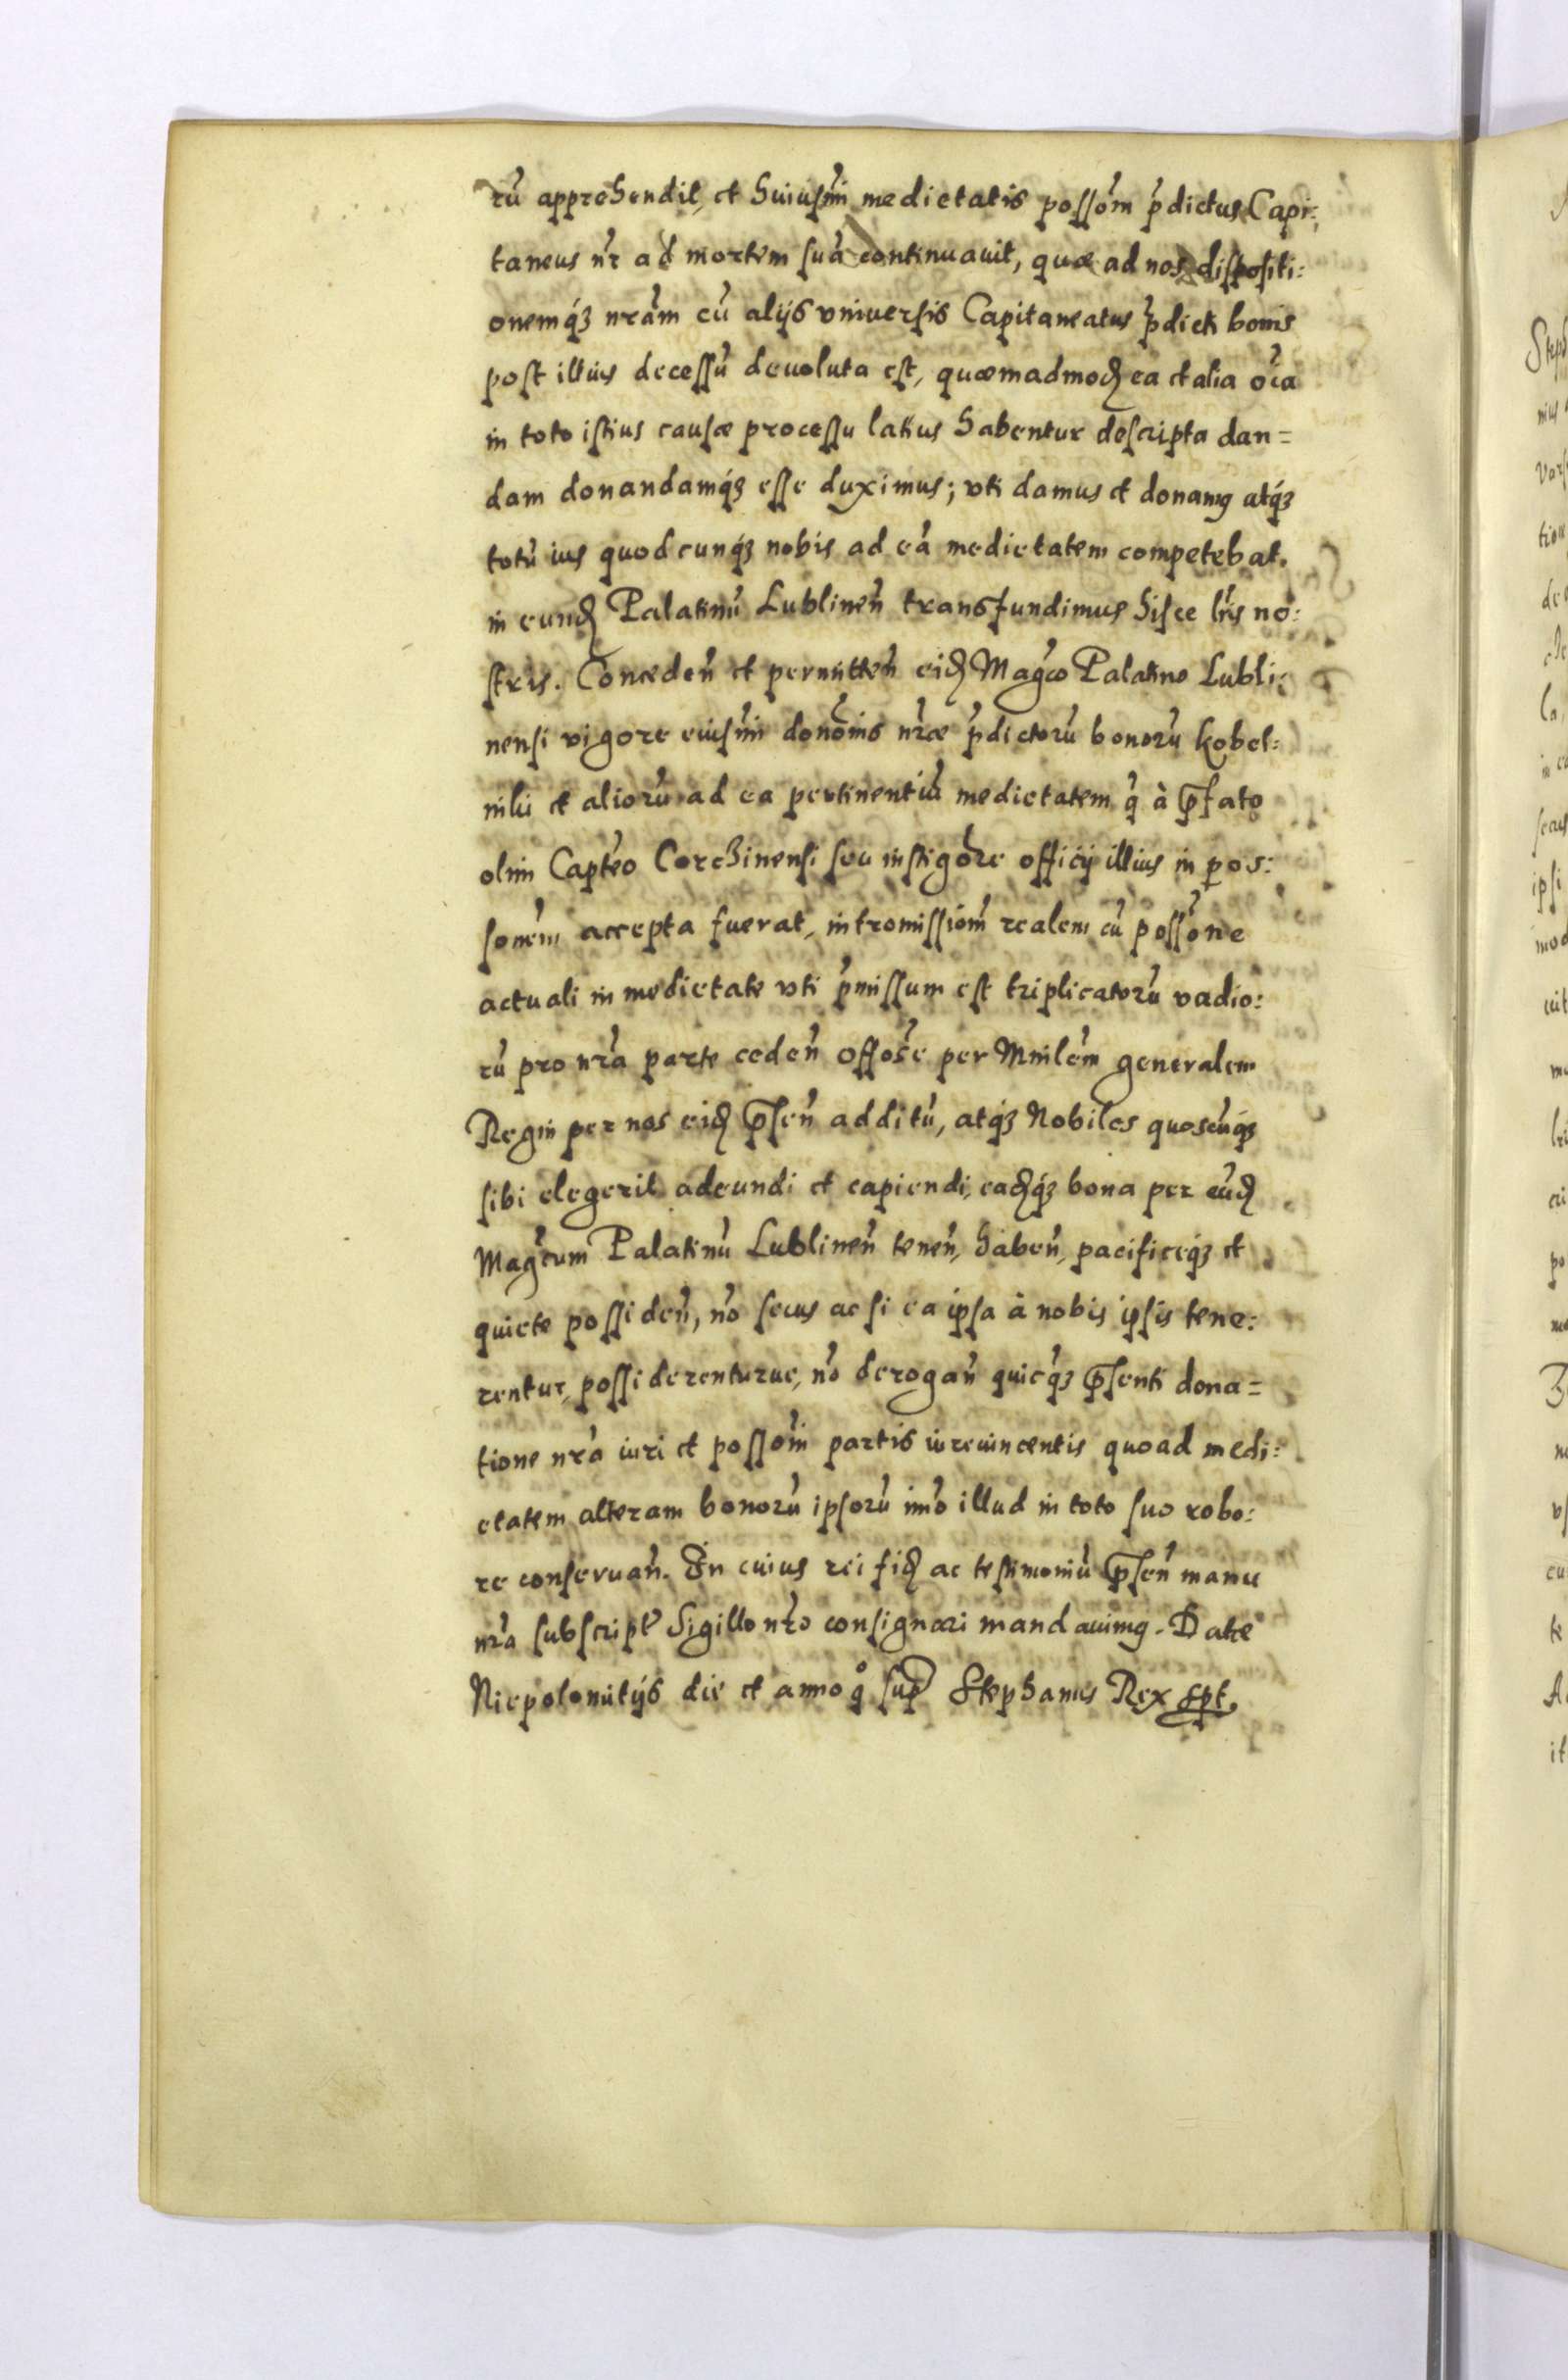 rũ apprehendit, et huiusm̃i medietatis possõm p̃dictus Capi:
taneus nr̃ ad mortem suã continuauit, quæ ad nos dispositi:
onemq́ꝫ nrãm cũ alijs vniuersis Capitaneatus p̃dicti bonis
post illius decessũ deuoluta est, quæmadmoɖ ea et alia oĩa
in toto istius causæ processu latius habentur descripta dan=
dam donandamq́ꝫ esse duximus; vti damus et donamꝰ atq́ꝫ
totũ ius quodcunq́ꝫ nobis ad eã medietatem competebat,
in eunɖ Palatinũ Lublineñ transfundimus hisce lr̃is no:
stris. Concedeñ et permitteñ eiɖ Mag̃co Palatino Lubli:
nensi vigore eiusm̃i donõnis nr̃æ p̃dictorũ bonorũ Kobel:
niki et aliorũ ad ea pertinentiũ medietatem q̃ à p̃fato
olim Capt̃eo Corczinensi seu instigõre officij illius in pos:
sonẽm accepta fuerat, intromissiõm realem cũ possõne
actuali in medietate vti p̃missum est triplicatorũ vadio:
rũ pro nr̃a parte cedeñ offõse per Mnilẽm generalem
Regni per nos eiɖ p̃señ additũ, atq́ꝫ Nobiles quoscũq́ꝫ
sibi elegerit adeundi et capiendi, eaɖq́ꝫ bona per eũɖ
Mag̃cum Palatinũ Lublineñ teneñ, habeñ, pacificeq́ꝫ et
quiete possideñ, nõ secus ac si ea ipsa à nobis ipsis tene:
rentur, possiderenturue, nõ derogañ quicq̃ꝫ p̃senti dona=
tione nr̃a iuri et possõm partis iureuincentis quoad medi:
etatem alteram bonorũ ipsorũ imõ illud in toto suo robo:
re conseruañ. In cuius rei fiɖ ac testimoniũ p̃señ manu
nr̃a subscript̃ Sigillo nr̃o consignari mandauimꝰ. Datæ
Niepolomitijs die et anno q̊ sup̃ Stephanus Rex spt.